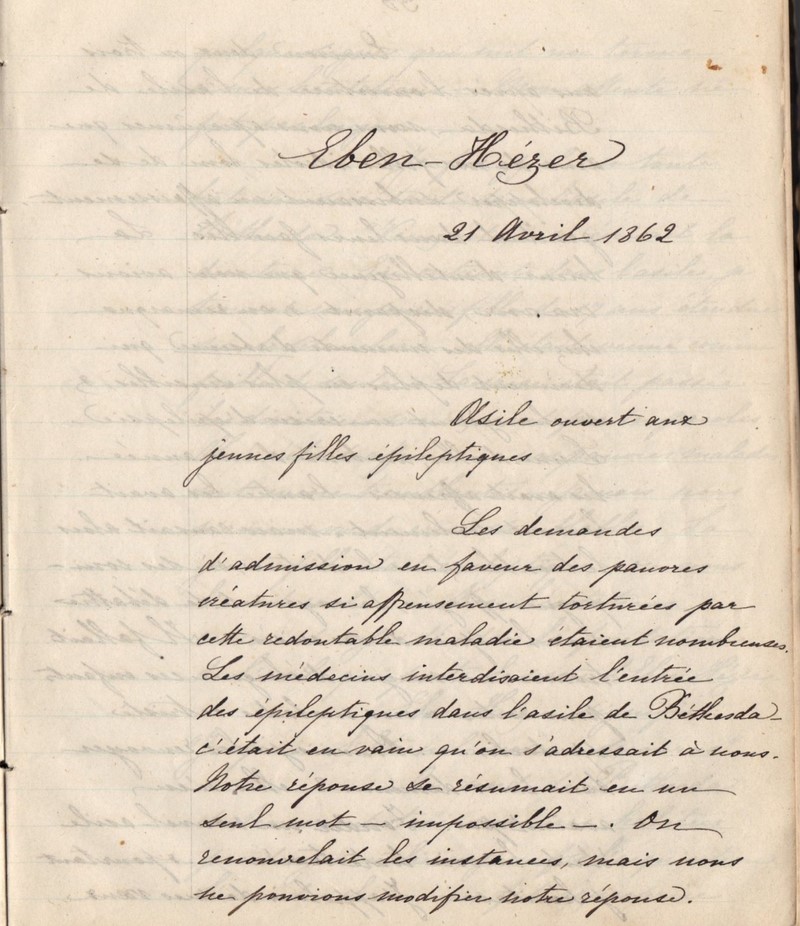 Eben-Hézer
21 Avril 1862
Asile ouvert aux
jeunes filles épileptiques
Les demandes
d'admission en faveur des pauvres
créatures si affreusement torturées par
cette redoutable maladie étaient nombreuses.
Les médecins interdisaient l'entrée
des épileptiques dans l'asile de Béthesda -
c'était en vain qu'on s'adressait à nous.
Notre réponse se résumait en un
seul mot - impossible - . On
renouvelait les instances, mais nous
ne pouvions modifier notre réponse.